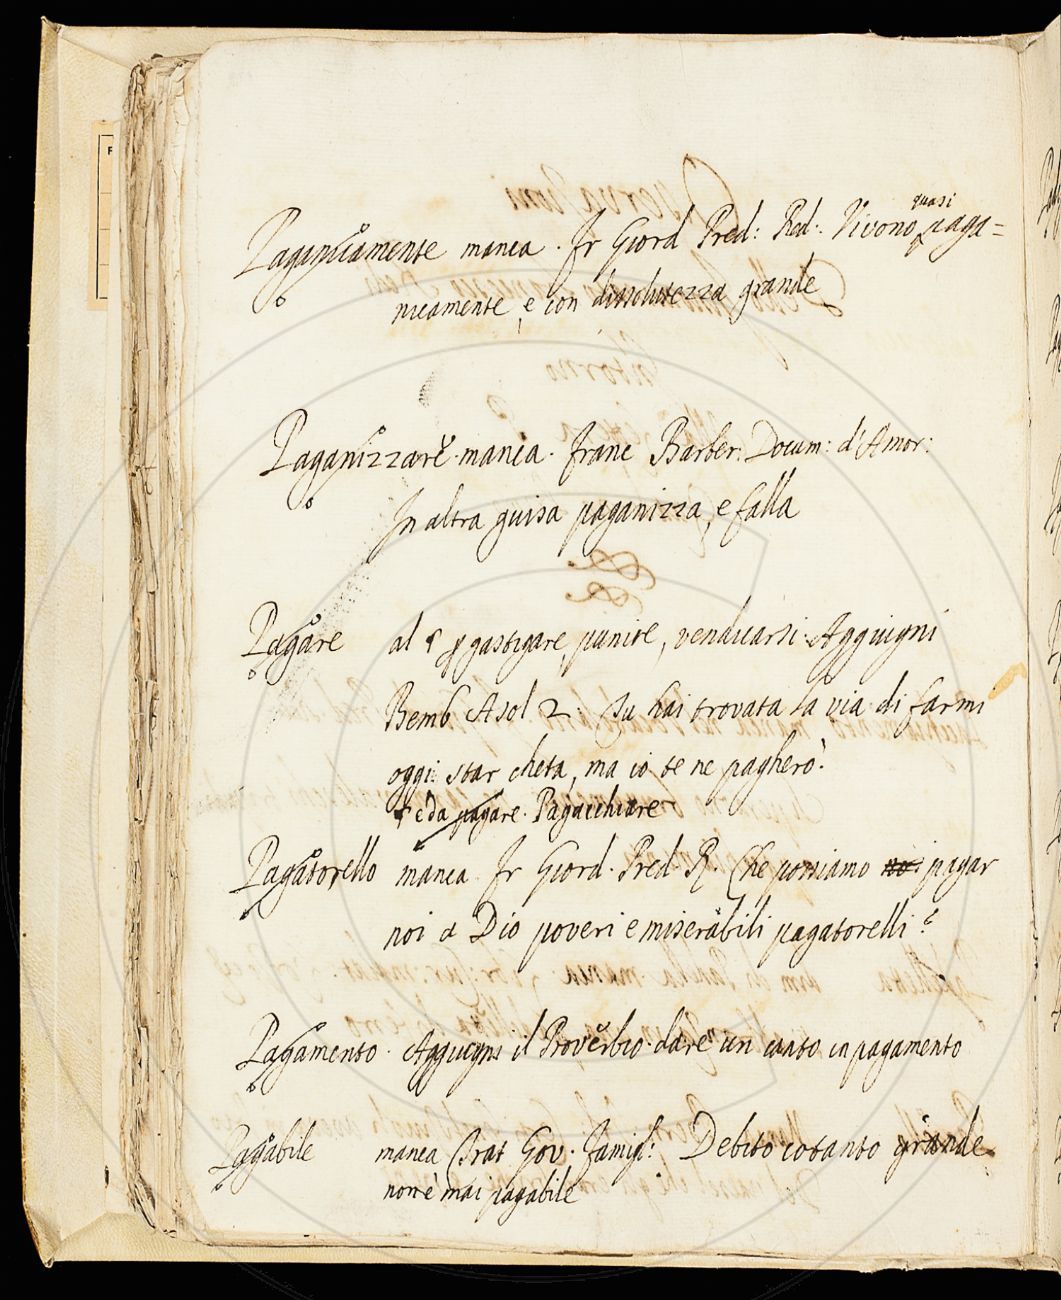 Paganicamente manca. Fr Giord Pred: Red: Vivono quasi paga=
nicamente, e con dissolutezza grande
Paganizzare. manca. Franc Barber: Docum: d'Amor:
In altra guisa paganizza, e falla
Pagare al § gastigare, punire, vendicarsi. Aggiugni
Bemb Asol 2. Tu hai trovata la via di farmi
oggi star cheta, ma io te ne pagherò.
e da pagare. Pagacchiare
Pagatorello manca Fr Giord. Pred R. Che possiamo noi pagar
noi a Dio poveri e miserabili pagatorelli?
Pagamento. Aggiugni il Proverbio. dare un canto in pagamento
Pagabile manca Trat Gov. Famigl: Debito cotanto grande
non è mai pagabile